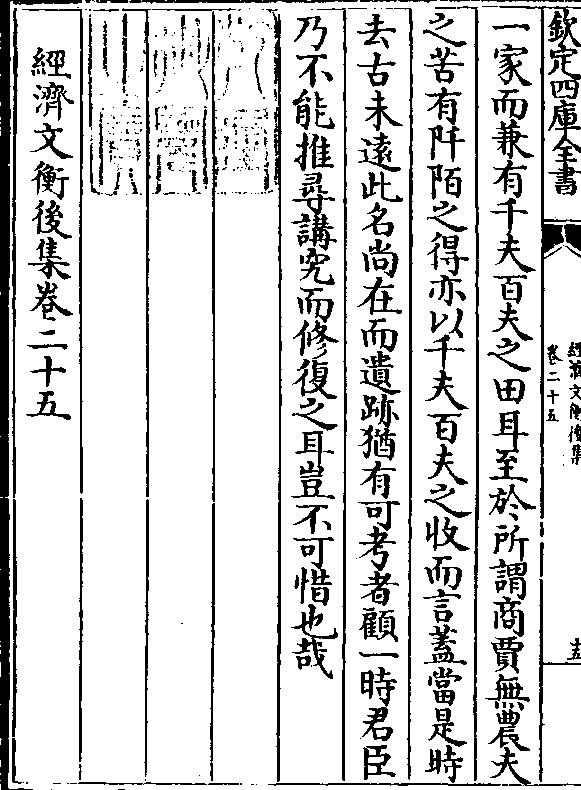 欽定四庫全書
經濟文衡後集
卷二十五
一家而兼有千夫百夫之田耳至於所謂商賈無農夫
之苦有阡陌之得亦以千夫百夫之收而言蓋當是時
去古未遠此名尚在而遺跡猶有可考者顧一時君臣
乃不能推尋講究而修復之耳豈不可惜也哉
經濟文衡後集卷二十五